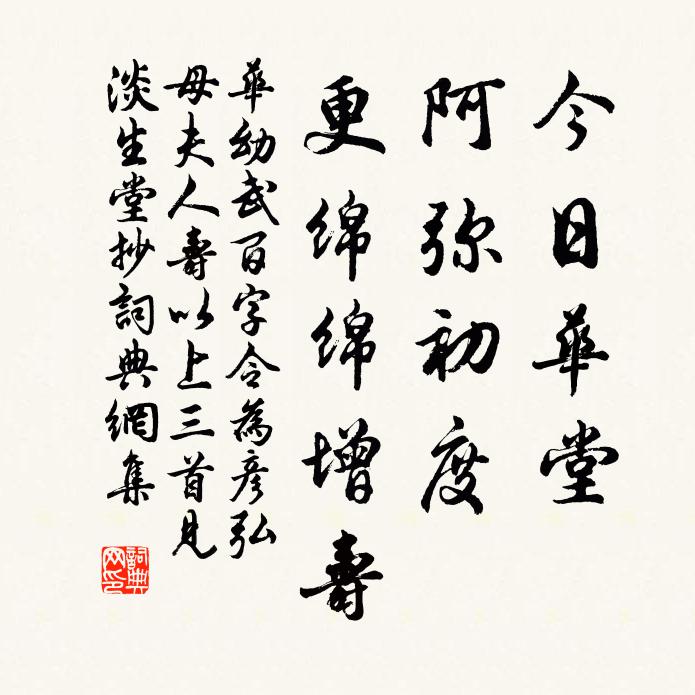 今日華堂
阿弥初度
更绵绵增壽
華幼武百字令為彦弘
母夫人壽以上三首見
淡生堂抄詞典網集
詞典网印